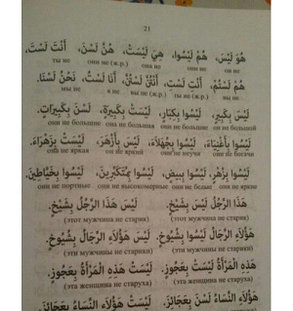 21
هُوَ لَيْسَ، هُمْ لَيْسُوا، هِيَ لَيْسَتْ، هُنَّ لَسْنَ، أَنْتَ لَسْتَ،
он не они не она не они не (ж.р.) ты не
هُمْ لَسْتُمْ، أَنْتِ لَسْتِ، أَنْتُنَّ لَسْتُنَّ، أَنَا لَسْتُ، نَحْنُ لَسْنَا.
ты не (ж.р.) вы не (ж.р.) я не мы не
لَيْسَ بِكَبِيرٍ، لَيْسُوا بِكِبَارٍ، لَيْسَتْ بِكَبِيرَةٍ، لَسْنَ بِكَبِيرَاتٍ.
он не большой они не большие она не большая они не большие
لَيْسُوا بِأَغْنِيَاءَ، لَيْسُوا بِجُهَلَاءَ، لَيْسَ بِأَزْهَرَ، لَيْسَتْ بِزَهْرَاءَ.
они не богачи они не неучи он не яркий она не яркая
لَيْسُوا بِزُهْرٍ، لَيْسُوا بِبِيضٍ، لَيْسُوا بِمُتَكَبِّرِينَ، لَيْسُوا بِخَيَّاطِينَ.
они не яркие они не белые они не высокомерные они не портные
لَيْسَ هَذَا الرَّجُلُ بِشَيْخٍ. هَذَا الرَّجُلُ لَيْسَ بِشَيْخٍ.
(этот мужчина не старик) (этот мужчина не старик)
هَؤُلَاءِ الرِّجَالُ لَيْسُوا بِشُيُوخٍ. لَيْسَ هَؤُلَاءِ الرِّجَالُ بِشُيُوخٍ.
(эти мужчины не старики) (эти мужчины не старики)
هَذِهِ الْمَرْأَةُ لَيْسَتْ بِعَجُوزٍ. لَيْسَتْ هَذِهِ الْمَرْأَةُ بِعَجُوزٍ.
(эта женщина не старуха) (эта женщина не старуха)
هَؤُلَاءِ النِّسَاءُ لَسْنَ بِعَجَائِزَ. لَيْسَتْ هَؤُلَاءِ النِّسَاءُ بِعَجَائِزَ.